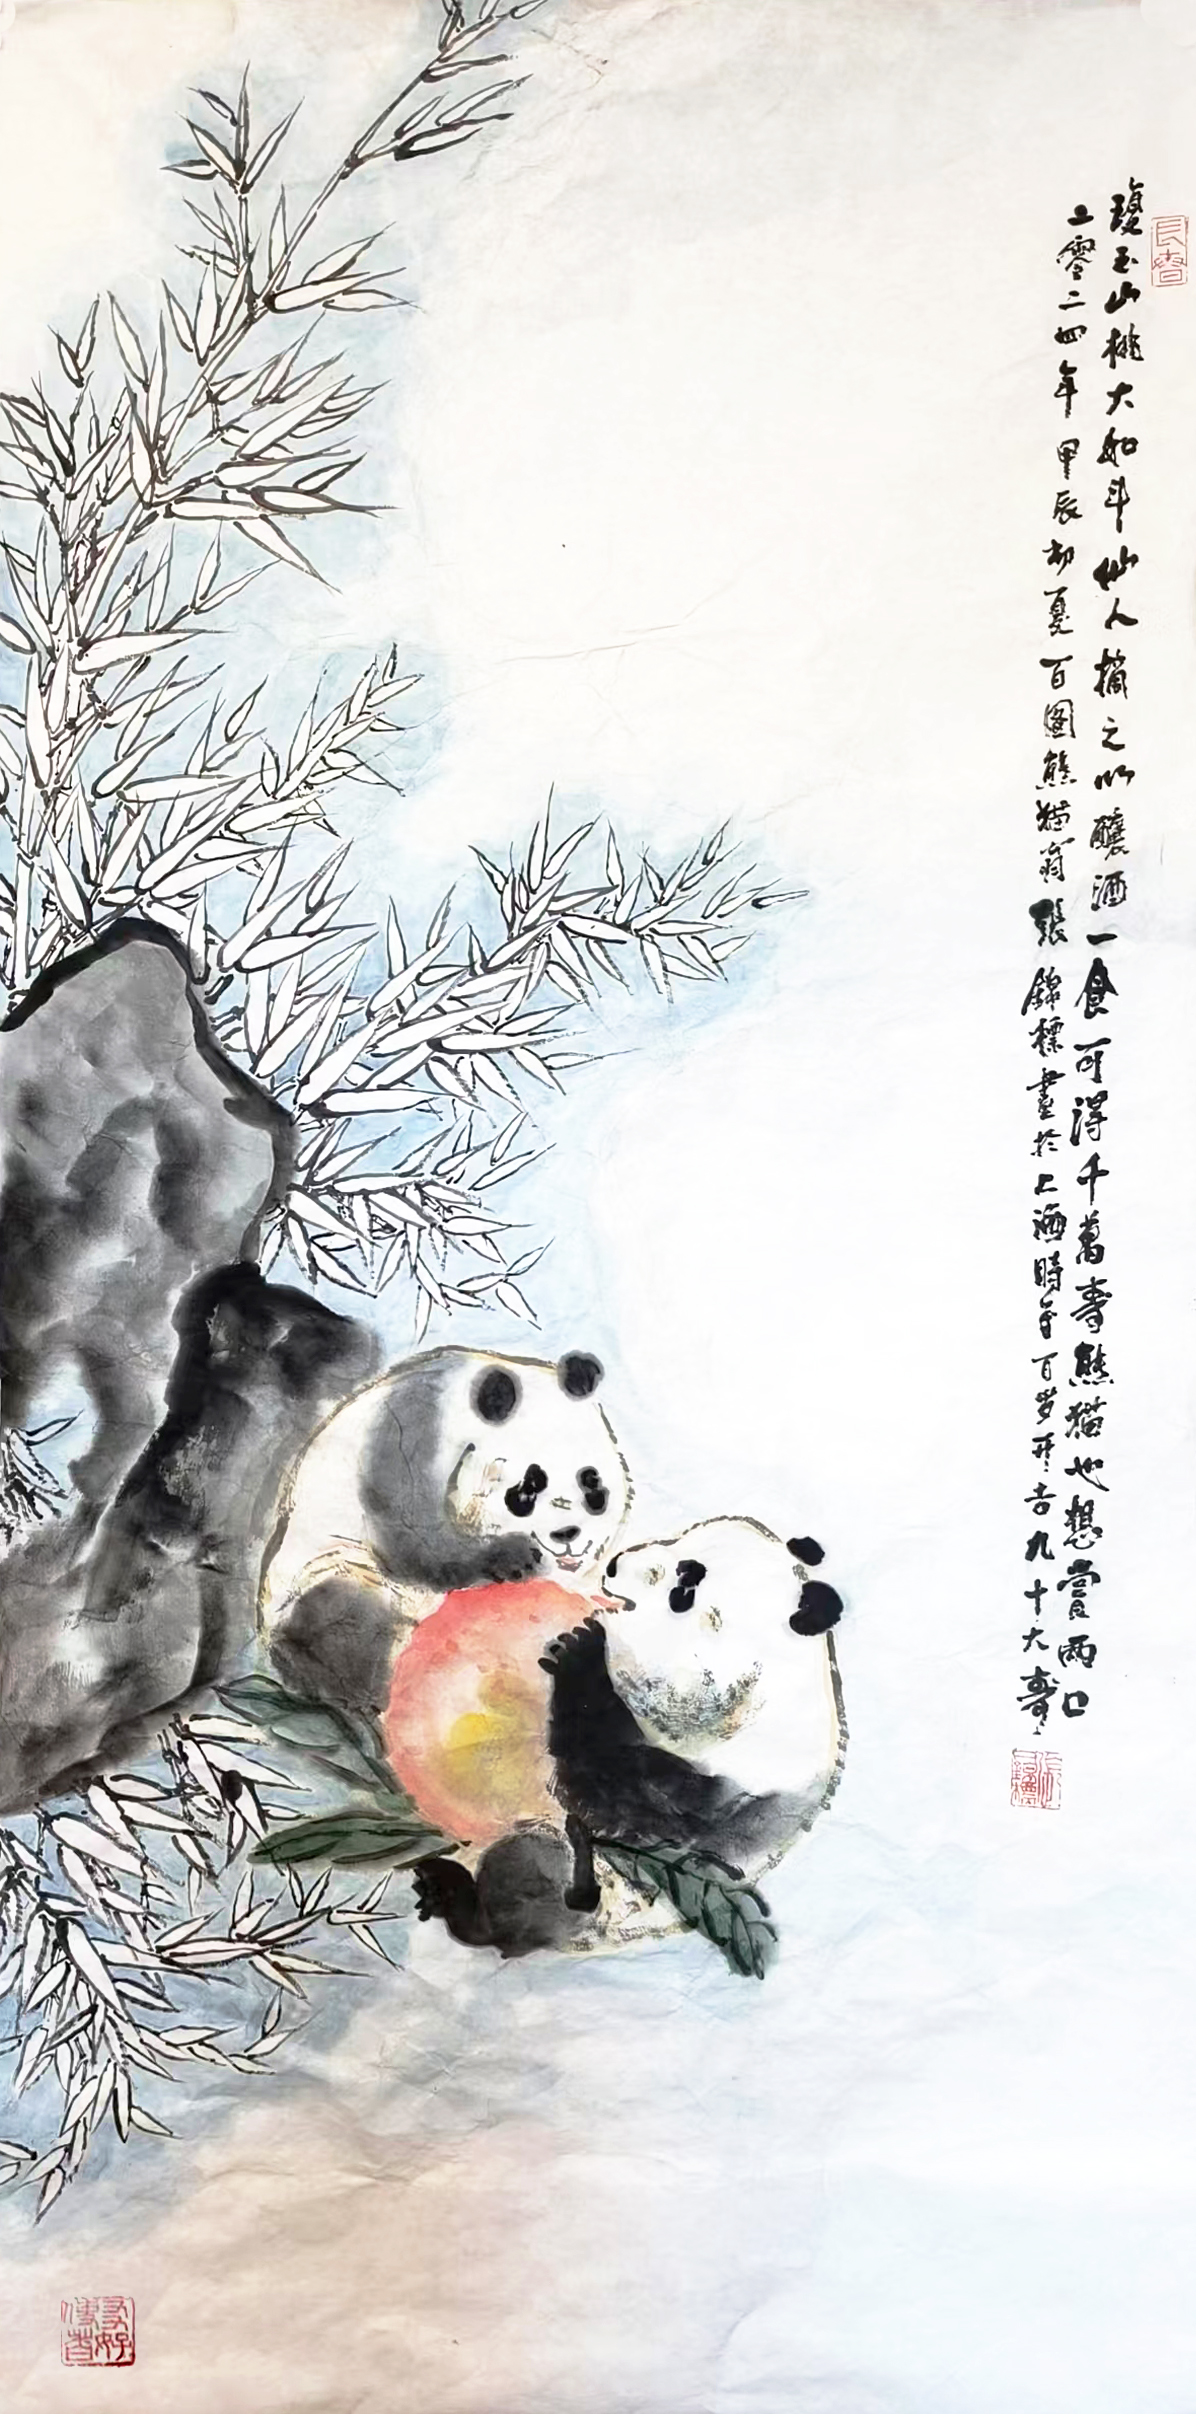 瓊玉山桃大如斗仙人摘之以釀酒一食可得千萬壽熊猫也想嘗兩口
二零二四年甲辰初夏百圖熊猫翁張錦標畫於上海時年百岁开吉九十大壽